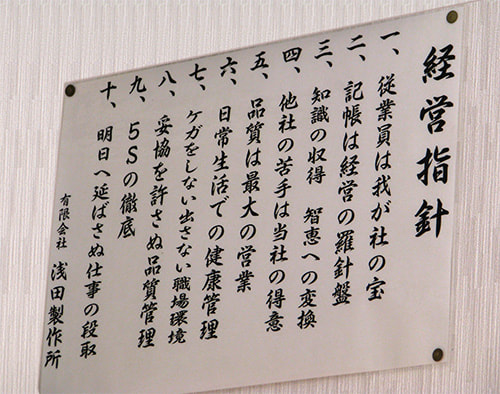 経営指針
一、従業員は我が社の宝
二、記帳は経営の羅針盤
三、知識の収得　智恵への変換
四、他社の苦手は当社の得意
五、品質は最大の営業
六、日常生活での健康管理
七、ケガをしない出さない職場環境
八、妥協を許さぬ品質管理
九、5Sの徹底
十、明日へ延ばさぬ仕事の段取
有限会社　浅田製作所